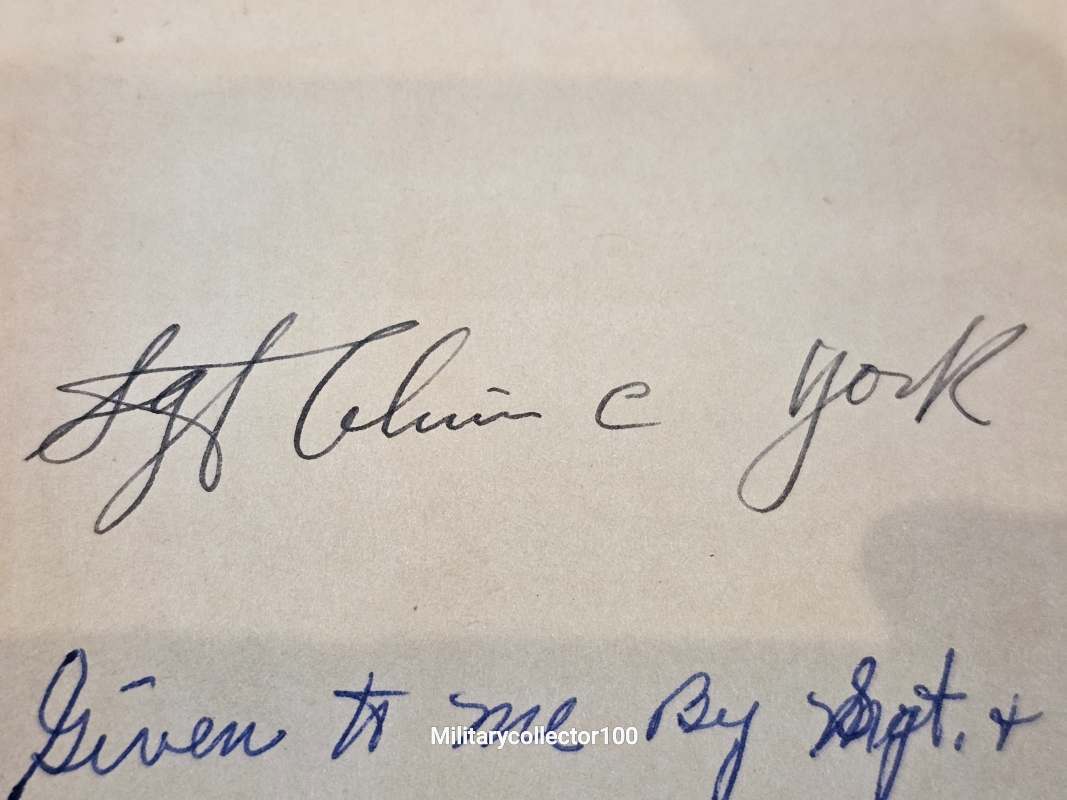 Sgt Alvin C York
Given to me By Sgt. +
Militarycollector100